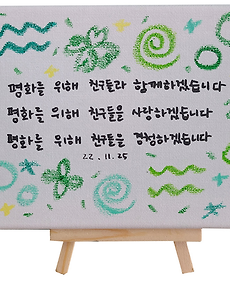 평화를 위해 친구들과 함께하겠습니다
평화를 위해 친구들을 사랑하겠습니다
평화를 위해 친구들을 경청하겠습니다
22.11.25